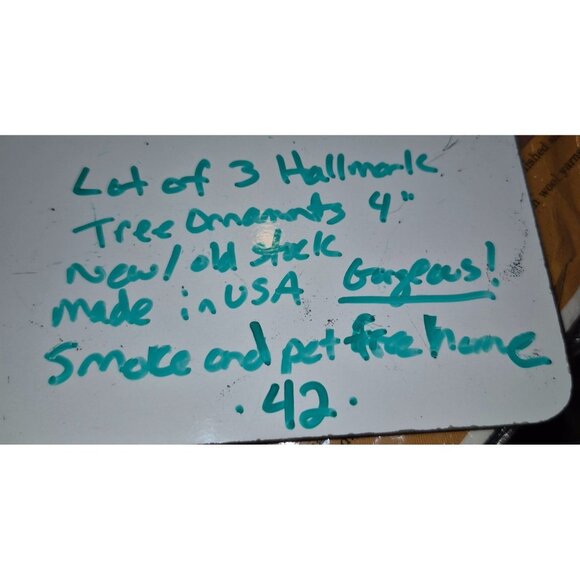 Lot of 3 Hallmark
Tree Ornamnts 4"
New/old stock
made in USA Gorgeous!
Smoke and pet free home
·42·
wool yarn